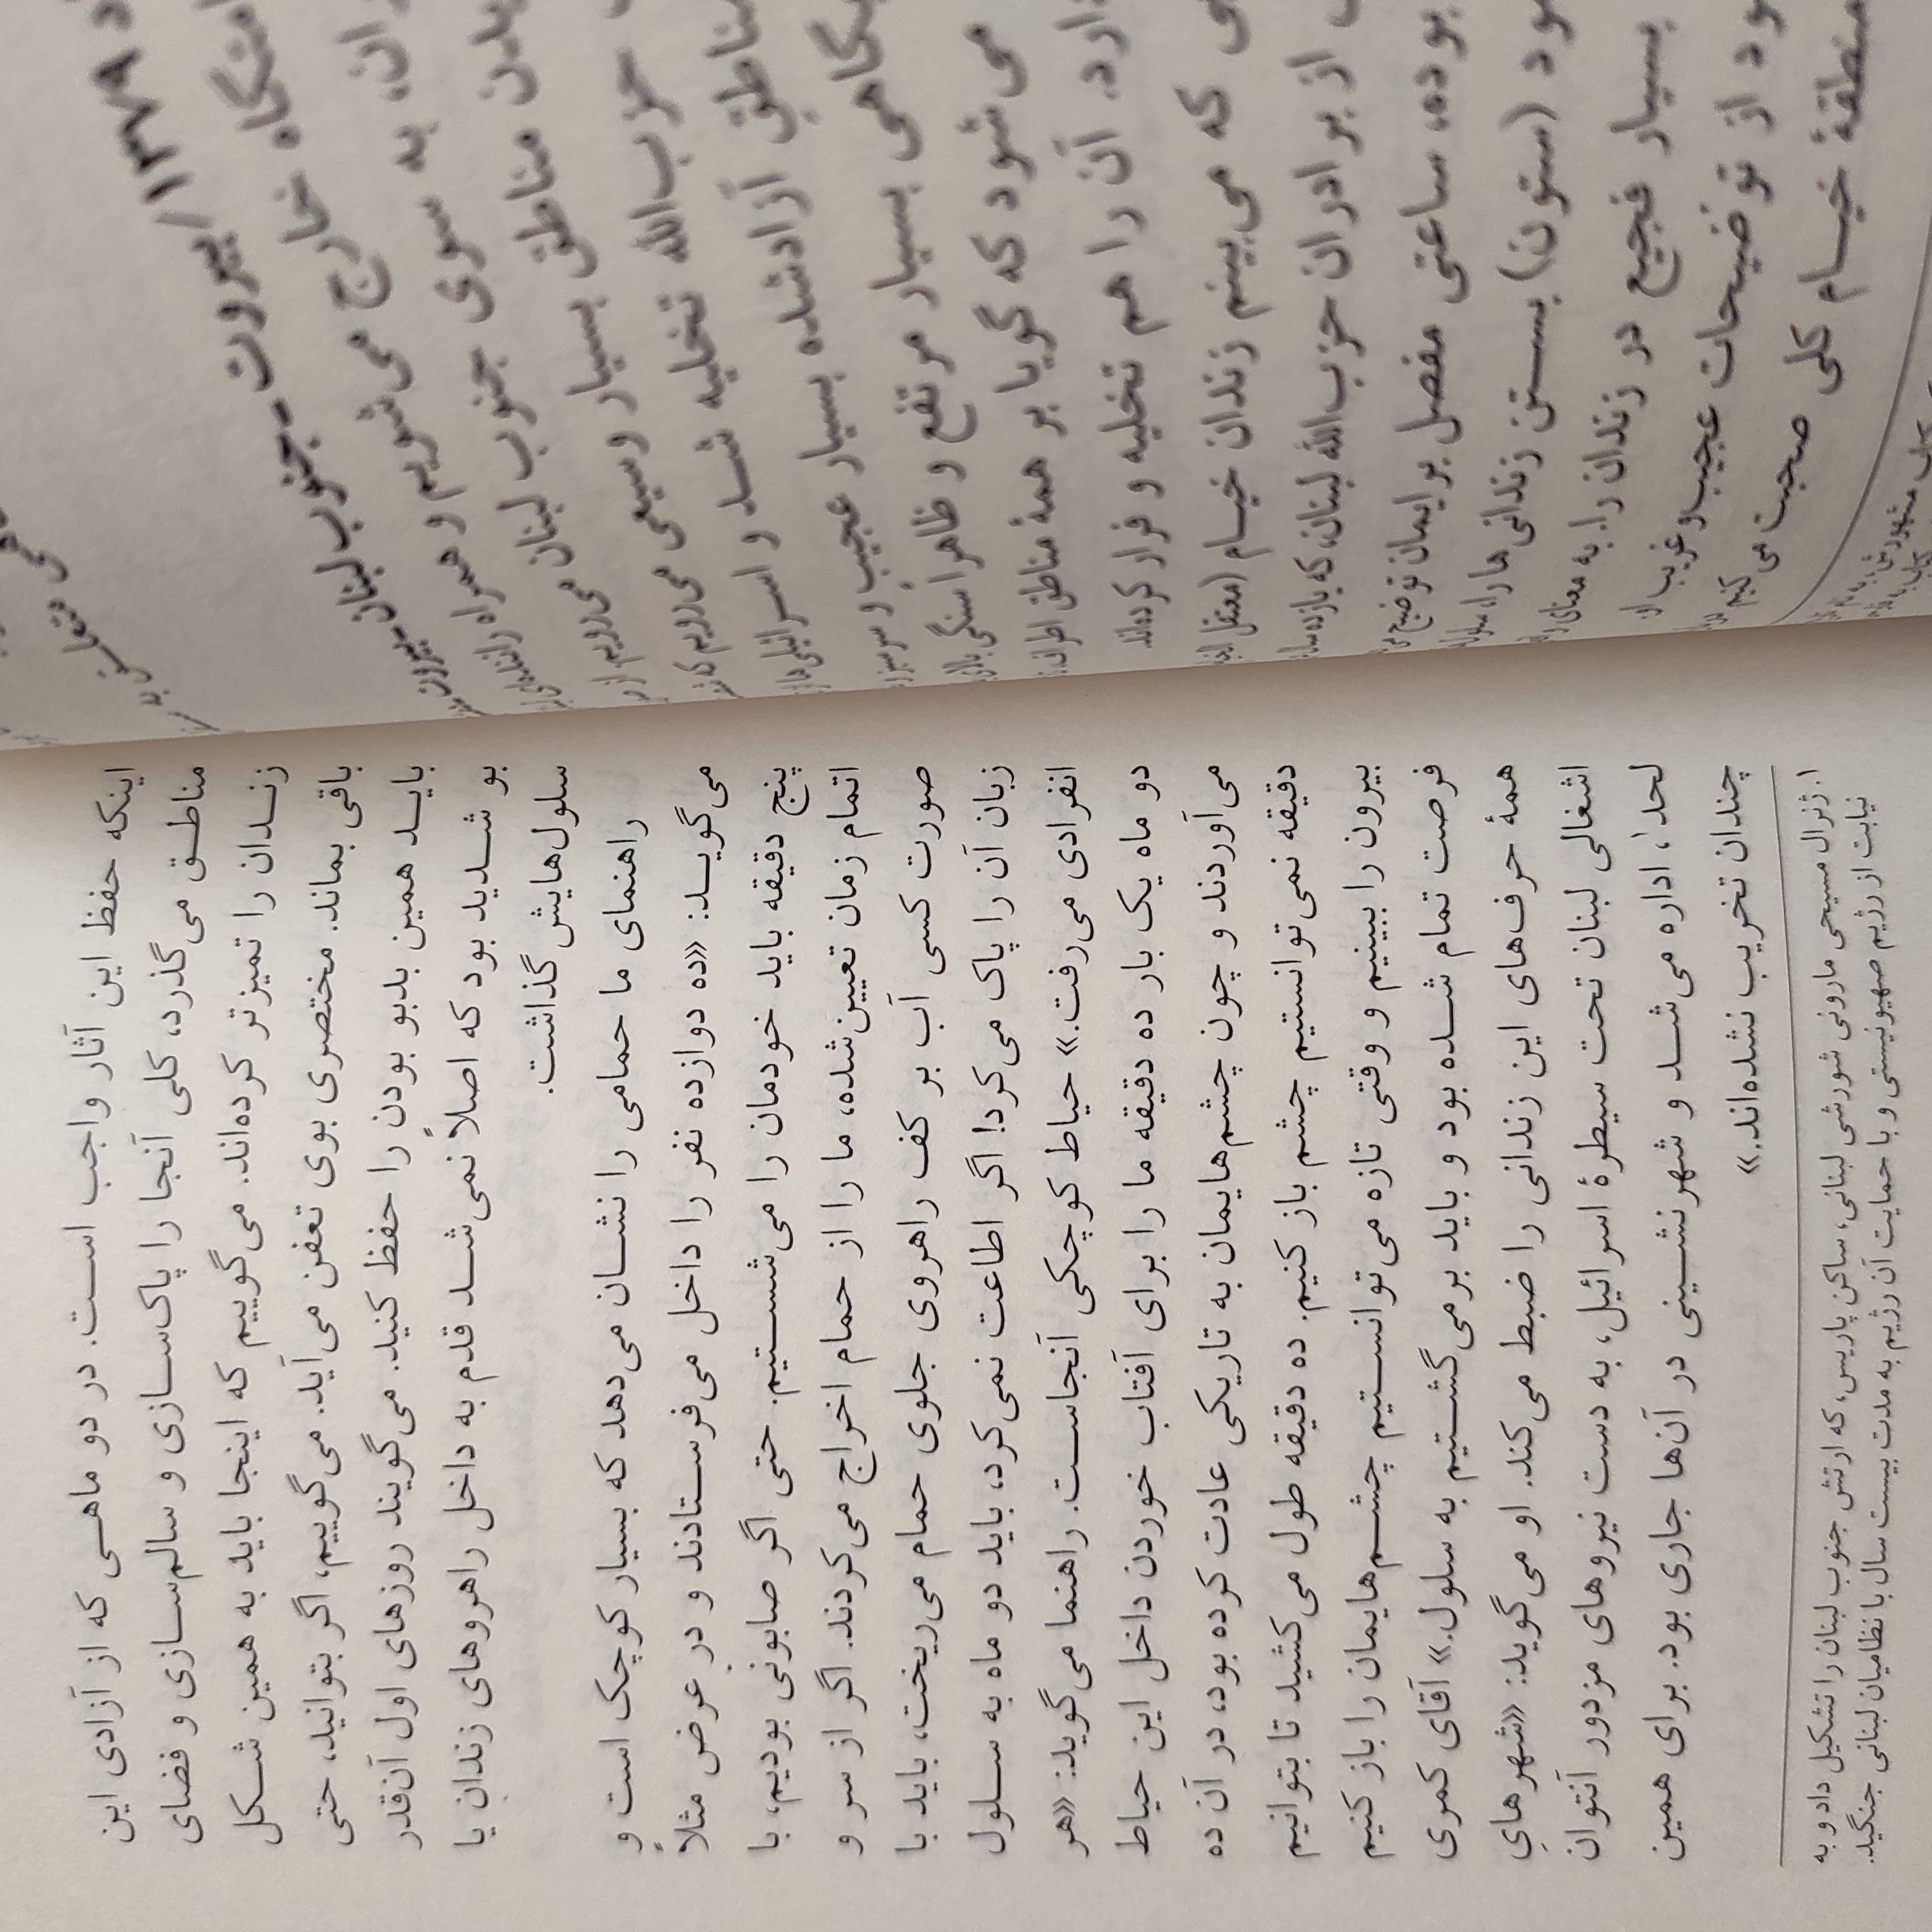 ۱۳۷۸/بیروت-جنوب لبنان-بیروت
خارج می‌شویم و همراه راننده‌ای
به سوی جنوب لبنان می‌رویم.
مناطق بسیار وسیعی می‌رویم که
حزب‌الله تخلیه شد و اسرائیلی‌ها
آزادشده بسیار عجیب و سرسبز
بسیار مرتفع و ظاهراً سنگی بالای
می‌شود که گویا بر همهٔ مناطق اطراف
آن را هم تخلیه و فرار کرده‌اند.
که می‌بینم زندان خیام (معتقل
از برادران حزب‌الله لبنان، که یازده
بوده، ساعتی مفصل برایمان توضیح
(ستون) بستن زندانی‌ها را،
بسیار فجیع در زندان را، به معنای
از توضیحات عجیب و غریب
منطقهٔ خیام کلی صحبت می‌کنیم
اینکه حفظ این آثار واجب است. در دو ماهی که از آزادی این
مناطق می‌گذرد، کلی آنجا را پاک‌سازی و سالم‌سازی و فضای
زندان را تمیزتر کرده‌اند. می‌گوییم که اینجا باید به همین شکل
باقی بماند. مختصری بوی تعفن می‌آید. می‌گوییم، اگر بتوانید، حتی
باید همین بدبو بودن را حفظ کنید. می‌گویند روزهای اول آن‌قدر
بو شدید بود که اصلاً نمی‌شد قدم به داخل راهروهای زندان یا
سلول‌هایش گذاشت.
راهنمای ما حمامی را نشان می‌دهد که بسیار کوچک است و
می‌گوید: «ده دوازده نفر را داخل می‌فرستادند و در عرض مثلاً
پنج دقیقه باید خودمان را می‌شستیم. حتی اگر صابونی بودیم، با
اتمام زمان تعیین‌شده، ما را از حمام اخراج می‌کردند. اگر از سر و
صورت کسی آب بر کف راهروی جلوی حمام می‌ریخت، باید با
زبان آن را پاک می‌کرد! اگر اطاعت نمی‌کرد، باید دو ماه به سلول
انفرادی می‌رفت.» حیاط کوچکی آنجاست. راهنما می‌گوید: «هر
دو ماه یک بار ده دقیقه ما را برای آفتاب خوردن داخل این حیاط
می‌آوردند و چون چشم‌هایمان به تاریکی عادت کرده بود، در آن ده
دقیقه نمی‌توانستیم چشم باز کنیم. ده دقیقه طول می‌کشید تا بتوانیم
بیرون را ببینیم و وقتی تازه می‌توانستیم چشم‌هایمان را باز کنیم
فرصت تمام شده بود و باید برمی‌گشتیم به سلول.» آقای کمری
همهٔ حرف‌های این زندانی را ضبط می‌کند. او می‌گوید: «شهرهایِ
اشغالی لبنان تحت سیطرهٔ اسرائیل، به دست نیروهای مزدور آنتوان
لحد۱، اداره می‌شد و شهرنشینی در آن‌ها جاری بود. برای همین
چندان تخریب نشده‌اند.»
۱. ژنرال مسیحی مارونی شورشی لبنانی، ساکن پاریس، که ارتش جنوب لبنان را تشکیل داد و به
نیابت از رژیم صهیونیستی و با حمایت آن رژیم به مدت بیست سال با نظامیان لبنانی جنگید.